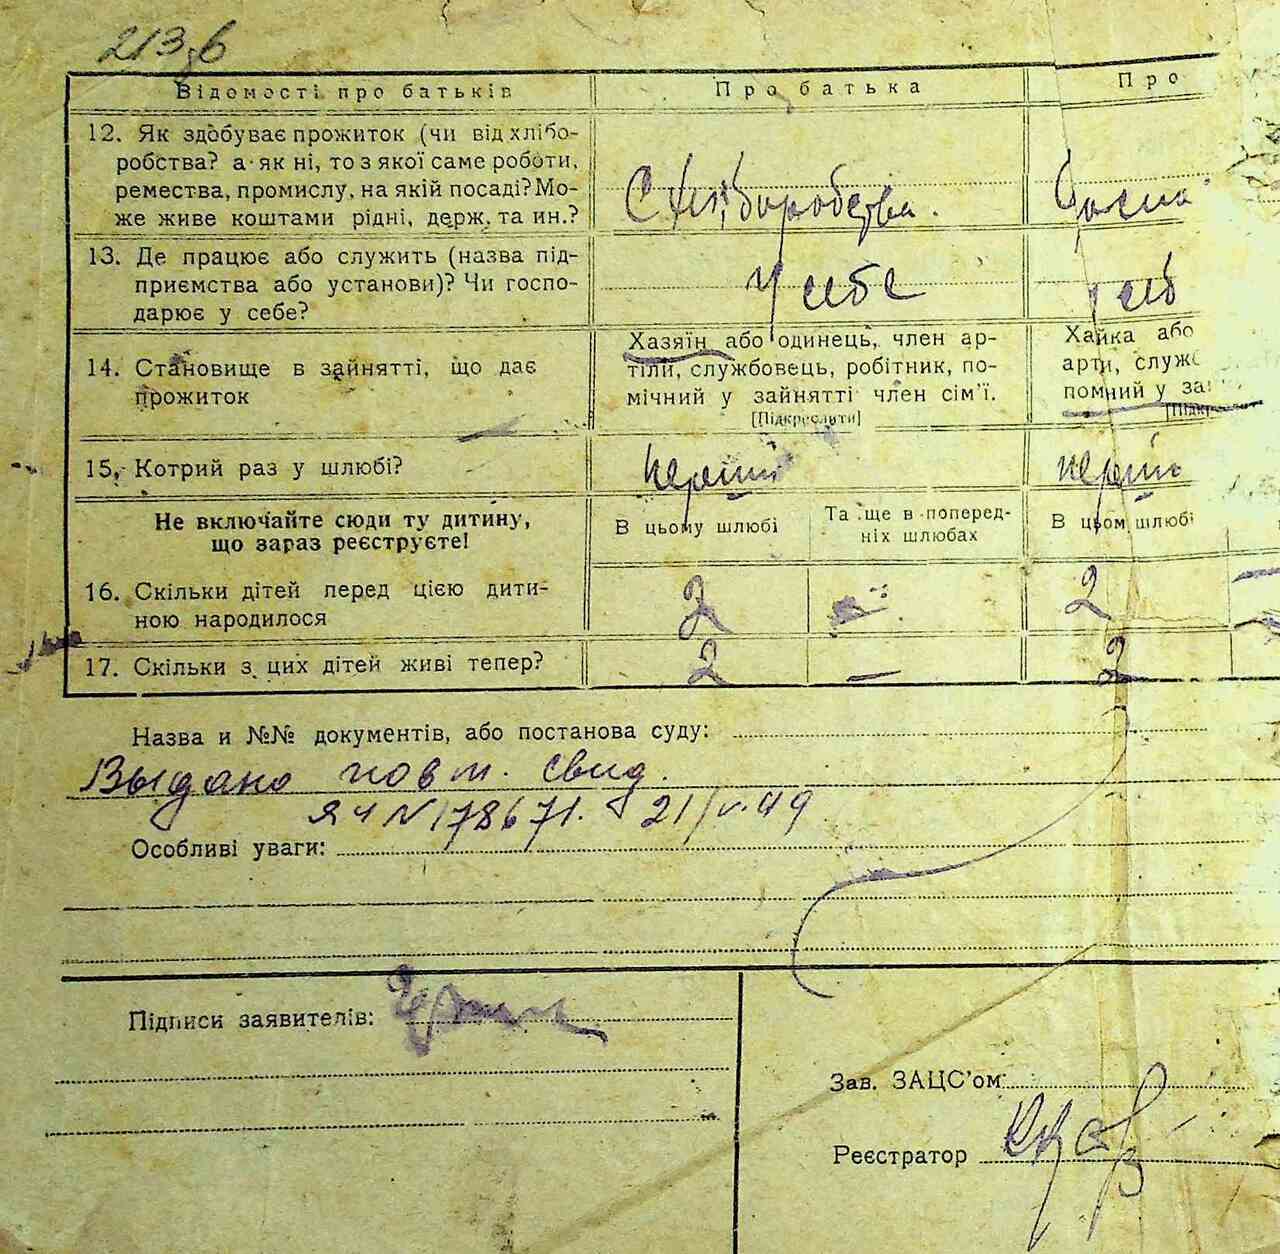 213 зв
Відомості про батьків
Про батька
Про
12. Як здобуває прожиток (чи від хлібо-
робства? а як ні, то з якої саме роботи,
ремества, промислу, на якій посаді? Мо-
же живе коштами рідні, держ, та ин.?
С хліборобства.
13. Де працює або служить (назва під-
приємства або установи)? Чи госпо-
дарює у себе?
У себе
у себ
14. Становище в зайнятті, що дає
прожиток
Хазяїн або одинець, член ар-
тіли, службовець, робітник, по-
мічний у зайнятті член сім'ї.
[Підкреслити]
Хайка або
арти, служ
помний у за
[Підк
15. Котрий раз у шлюбі?
перший
перший
Не включайте сюди ту дитину,
що зараз реєструєте!
В цьому шлюбі
Та ще в поперед-
ніх шлюбах
В цьом шлюбі
16. Скільки дітей перед цією дити-
ною народилося
2
-
2
-
17. Скільки з цих дітей живі тепер?
2
-
2
Назва и №№ документів, або постанова суду:
Выдано повт. свид.
ЯЧ N 178671. 21/V.49
Особливі уваги:
Підписи заявителів:
Зав. ЗАЦС'ом
Реєстратор